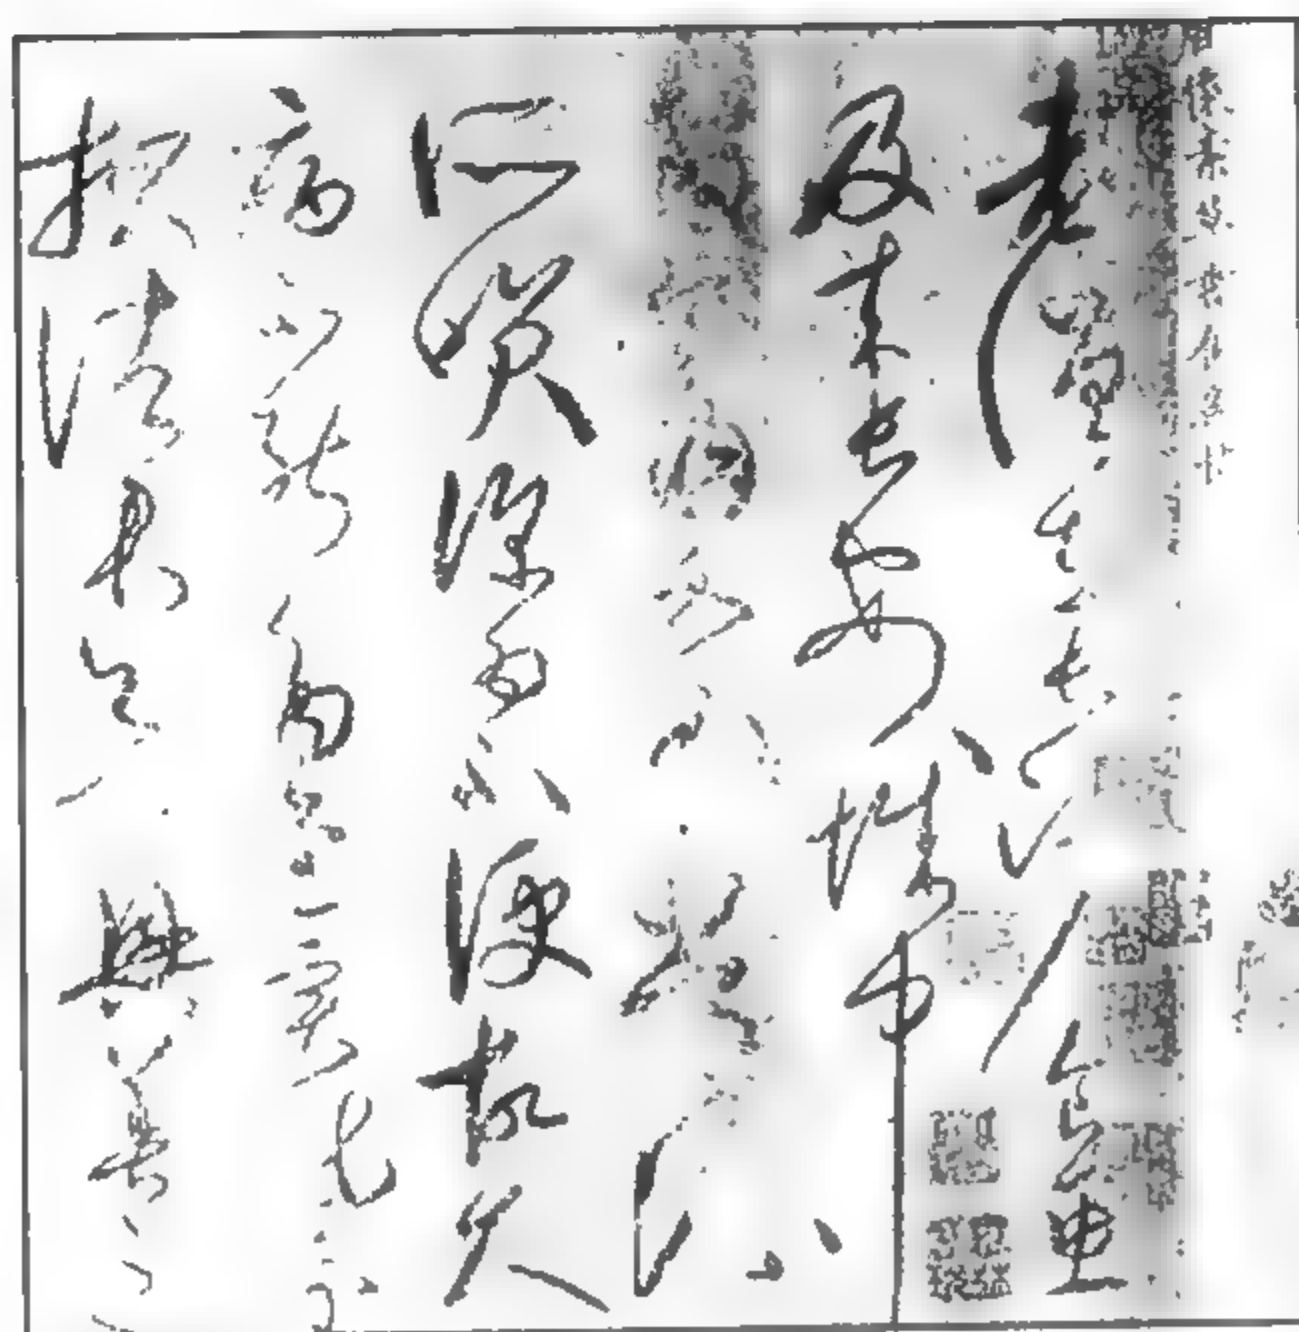 老僧在長沙食魚
及來長安城中
多食肉又為常流
所笑深為不便故久
病不能多書實疏還
報諸君欲興善之